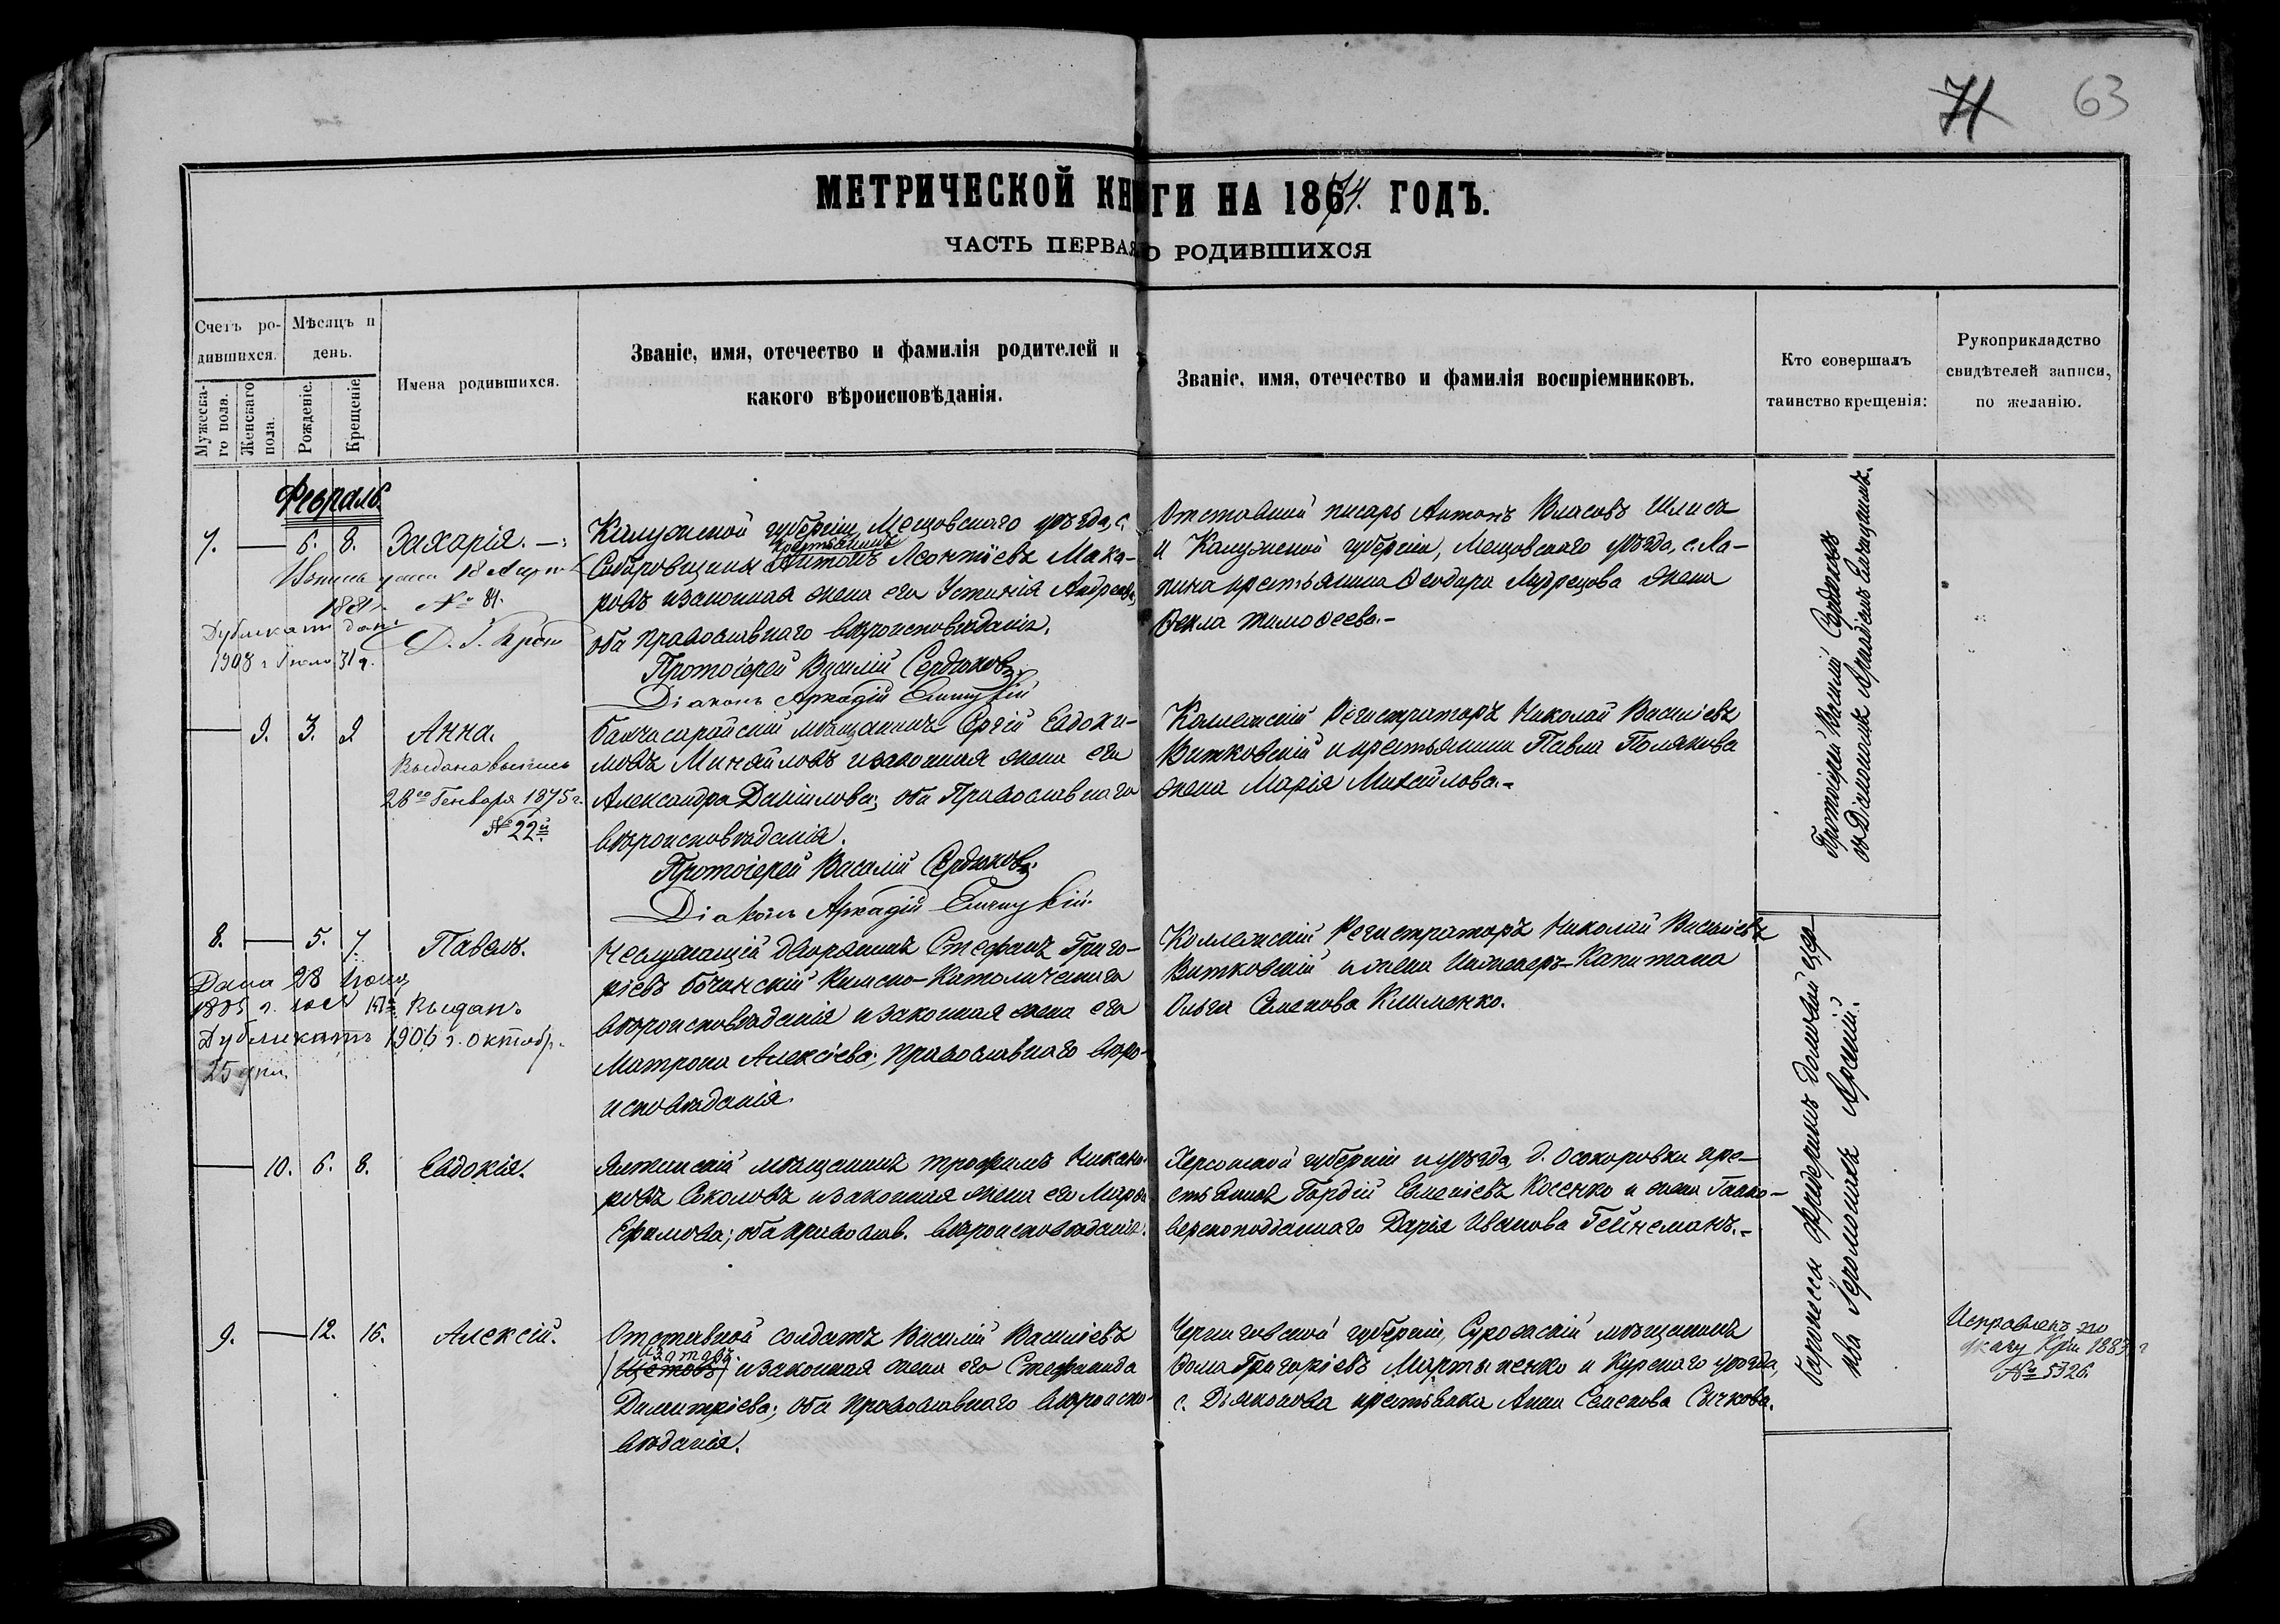 71 63
МЕТРИЧЕСКОЙ КНИГИ НА 1874. ГОДЪ.
ЧАСТЬ ПЕРВАЯ О РОДИВШИХСЯ
Счетъ ро-
дившихся.
Мужеска-
го пола.
Женскаго
пола.
Мѣсяцъ и
день.
Рожденіе.
Крещеніе.
Имена родившихся.
Званіе, имя, отечество и фамилія родителей и
какого вѣроисповѣданія.
Званіе, имя, отечество и фамилія воспріемниковъ.
Кто совершалъ
таинство крещенія:
Рукоприкладство
свидѣтелей записи,
по желанію.
Февраль.
7. — 6. 8. Захарія. —
18
№ 81.
Дубликатъ данъ
1908 г 31 д.
Калужской губерніи Мещовскаго уѣзда, с.
крестьянинъ
Антонъ Леонтіевъ Мака-
ровъ и законная жена его Устинія Андреева,
оба православнаго вѣроисповѣданія.
Протоіерей Василій Сердюковъ.
Діаконъ Аркадій
Отставной писарь Антонъ Власовъ Шлисъ
и Калужской губерніи, Мещовскаго уѣзда, с. Ла-
пина крестьянина Ѳеодора Мудрецова жена
Ѳекла Тимоѳеева. -
— 9. 3. 9 Анна.
Выдана выпись
28го Генваря 1875 г.
№ 22й
Бахчисарайскій мѣщанинъ Сергій Евдоки-
мовъ Минайловъ и законная жена его
Александра Даніилова; оба Православнаго
вѣроисповѣданія.
Протоіерей Василій Сердюковъ.
Діаконъ Аркадій
Коллежскій Регистраторъ Николай Василіевъ
Витковскій и крестьянина Павла Полякова
жена Марія Михайлова. -
Протоіерей Василій Сердюковъ
съ Діакономъ Аркадіемъ
8. — 5. 7. Павелъ.
Дана 28 Іюня
Выданъ
Дубликатъ 1906 г. октябр.
25 дня.
Неслужащій дворянинъ Стефанъ Григо-
ріевъ Бочинскій Римско-Католическаго
вѣроисповѣданія и законная жена его
Матрона Алексіева; православнаго вѣро-
исповѣданія.
Коллежскій Регистраторъ Николай Василіевъ
Витковскій и жена Инженеръ-Капитана
Ольга Семенова Клименко.
— 10. 6. 8. Евдокія.
Ялтинскій мѣщанинъ Трофимъ Никано-
ровъ Соколовъ и законная жена его Марѳа
Ефимова; оба православ. вѣроисповѣданія.
Херсонской губерніи и уѣзда, д. Осокоровки кре-
стьянинъ Гордій Евменіевъ Косенко и жена Гано-
верскоподданнаго Дарія Иванова Гейнеманъ. -
9. — 12. 16. Алексій.
Отставной солдатъ Василій Василіевъ
Изотовъ
(Щетовъ) и законная жена его Стефанида
Димитріева; оба православнаго вѣроиспо-
вѣданія.
Черниговской губерніи, Суражскій мѣщанинъ
Ѳома Григоріевъ Мартыненко и Курскаго уѣзда,
с. Дьяконова крестьянка Анна Семенова Сычкова.
Баронессы Фридериксъ домовой цер-
кви Іеромонахъ Арсеній.
Исправленъ по
указу 1883 г
№ 5326.